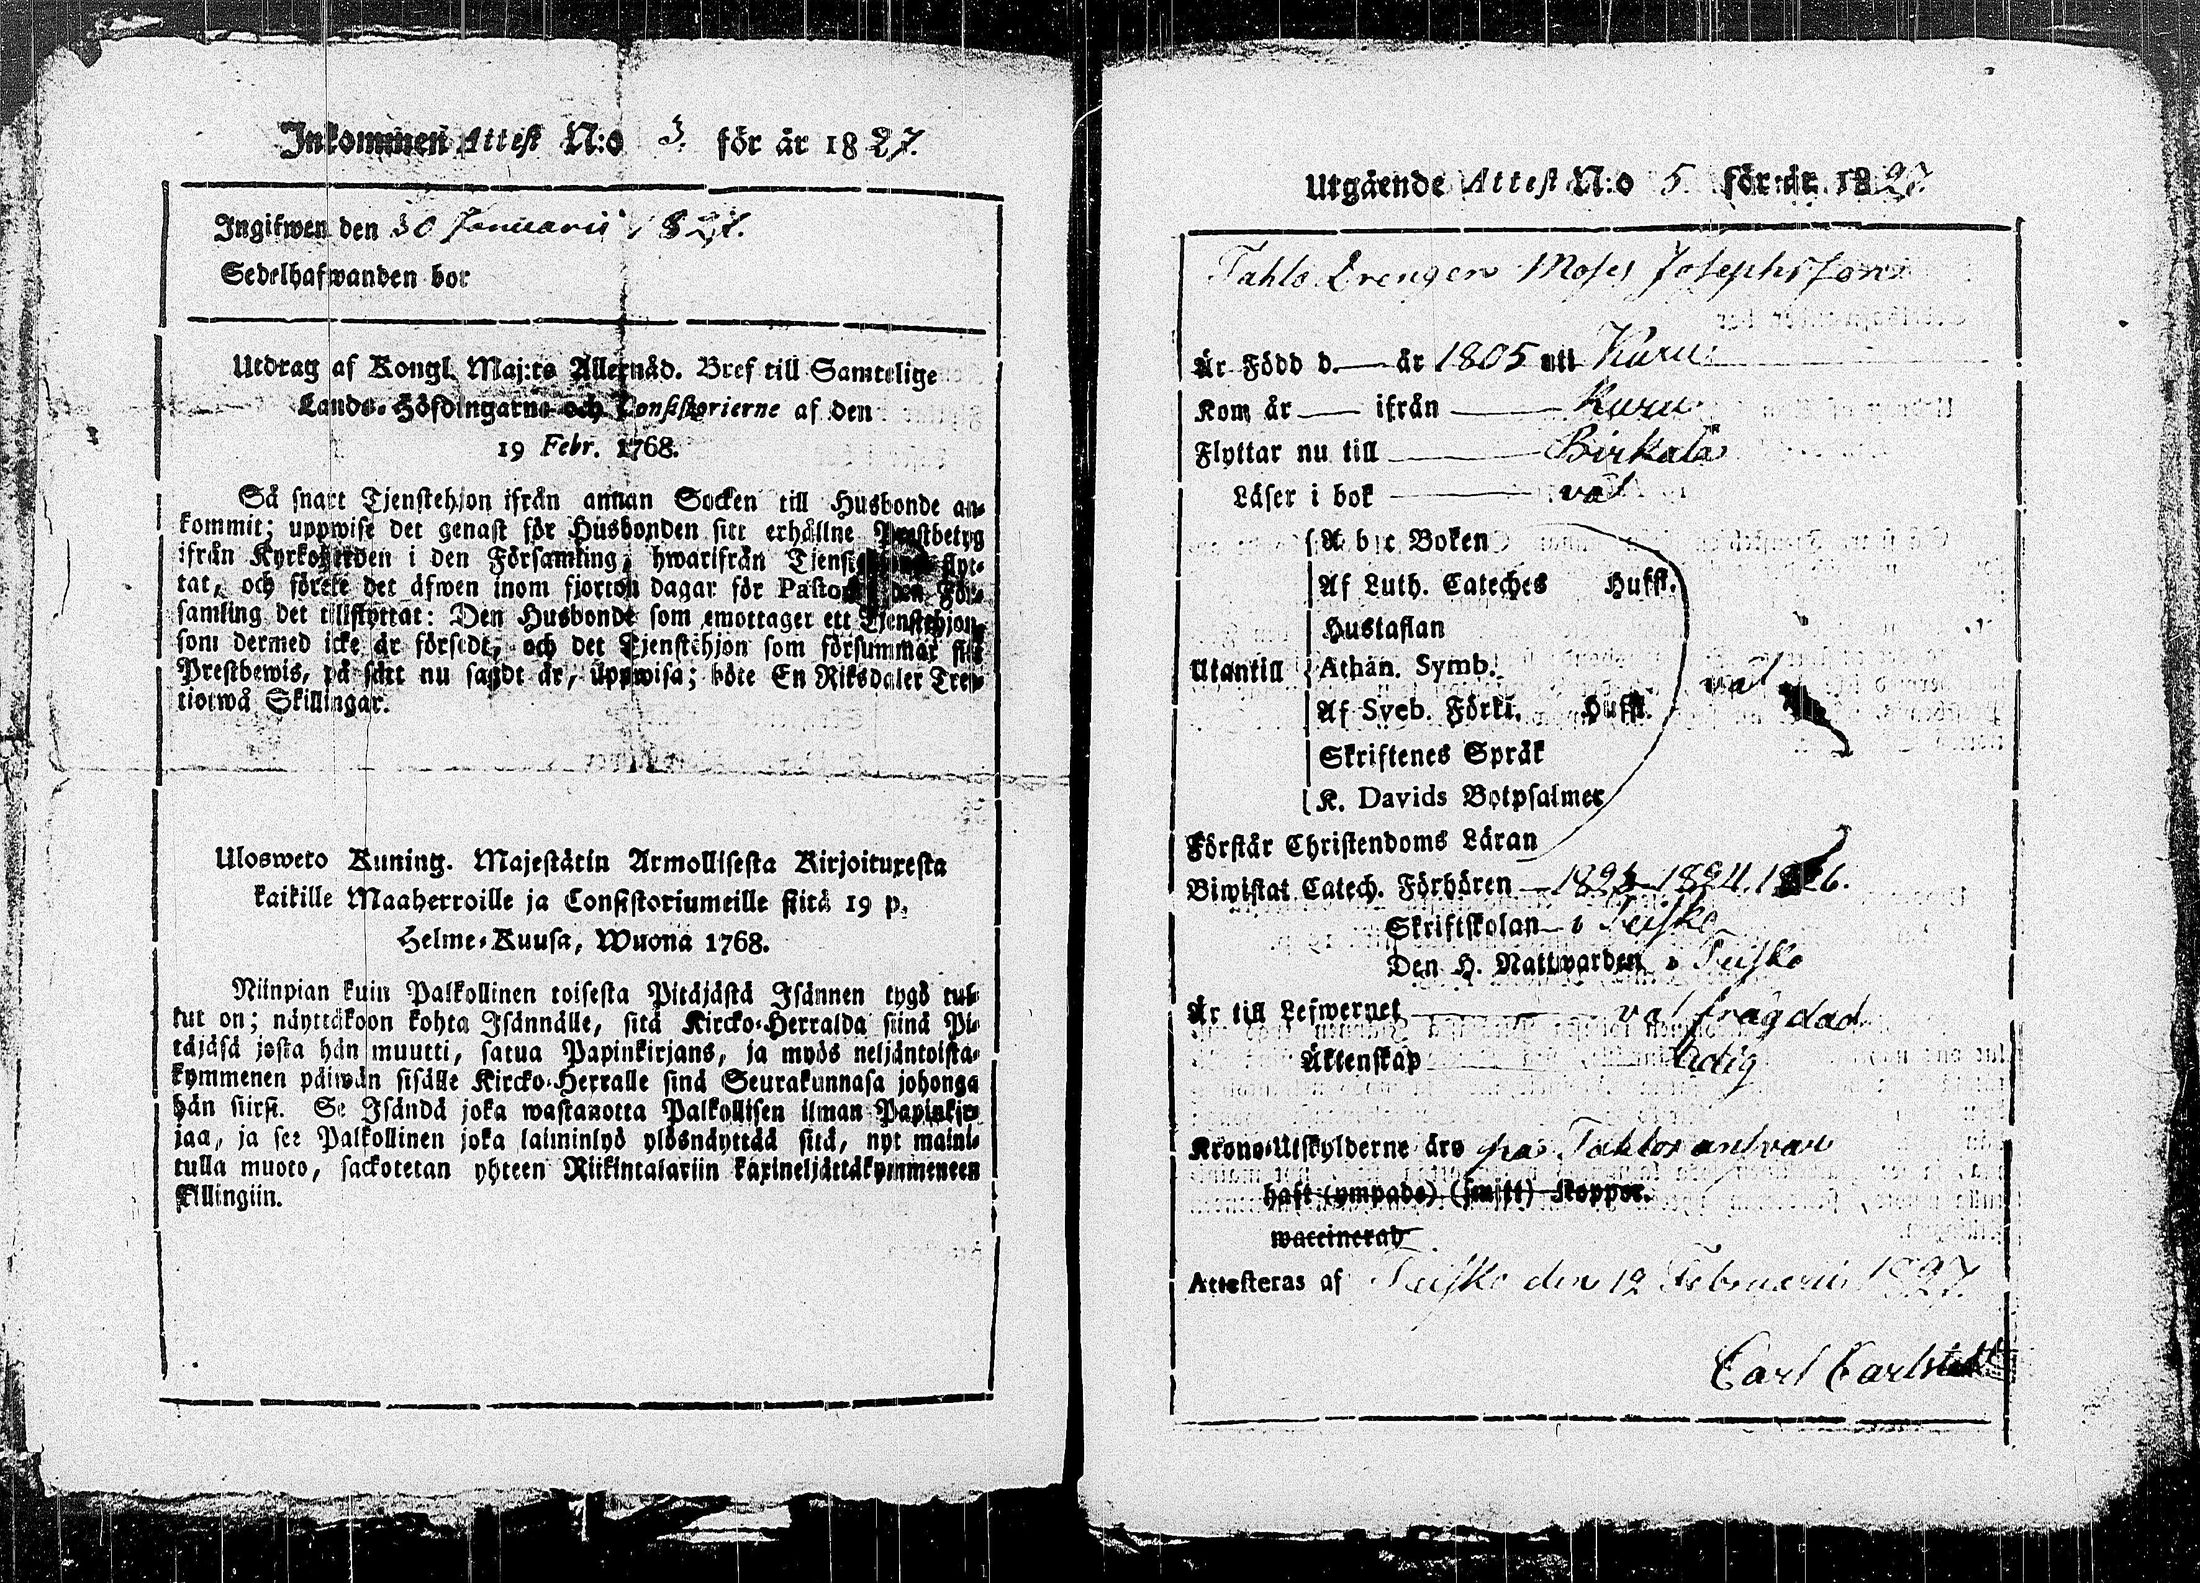 Inkommen Attest N:o 3. för år 1827.
Ingifwen den 30 Januarii 1827.
Sedelhafwanden bor
Utdrag af Kongl. Maj:ts Allernåd. Bref till Samtelige
Lands-Höfdingarne och Consistorierne af den
19 Febr. 1768.
Så snart Tjenstehjon ifrån annan Socken till Husbonde an-
kommit; uppwise det genast för Husbonden sitt erhållne Prestbetyg
ifrån Kyrkoherden i den Församling, hwarifrån flyt-
tat, och förete det äfwen inom fjorton dagar för Pastor den För-
samling det tillflyttat: Den Husbonde som emottager ett Tjenstehjon,
som dermed icke är försedt, och det Tjenstehjon som försummar sitt
Prestbewis, på sätt nu sagdt är, uppwisa; böte En Riksdaler Tret-
tiotwå Skillingar.
Ulosweto Kuning. Majestätin Armollisesta Kirjoituxesta
kaikille Maaherroille ja Consistoriumeille siitä 19 p.
Helme-Kuusa, Wuona 1768.
Niinpian kuin Palkollinen toisesta Pitäjästä Isännen tygö tul-
lut on; näyttäköön kohta Isännälle, sitä Kircko-Herralda siinä Pi-
täjäsä josta hän muutti, saatua Papinkirjans, ja myös neljäntoista-
kymmenen päiwän sisälle Kircko-Herralle sinä Seurakunnasa johonga
hän siirsi. Se Isändä joka wastaanotta Palkollisen ilman Papinkir-
jaa, ja see Palkollinen joka laiminlyö ylösnäyttää sitä, nyt maini-
tulla muoto, sackotetan yhteen Riikintalariin kaxineljättäkymmeneen
killingiin.
Utgående Attest N:o 5. för år 1827.
Tahlo Drengen Moses Josephsson
Är Född d. — år 1805 uti Kuru
Kom år — ifrån — Kuru
Flyttar nu till — Birkala
Läser i bok — väl
A b c Boken
Af Luth. Cateches Hufst.
Hustaflan
Utantill Athan. Symb. väl
Af Sveb. Förkl. Hufst.
Skriftenes Språk
K. Davids Botpsalmer
Förstår Christendoms Läran
Biwistat Catech. Förhören — 1823 1824. 1826.
Skriftskolan i Teisko
Den H. Nattwarden i Teisko
Är till Lefwernet — väl frägdad
Äktenskap — ledig
Krono-Utskylderne äro på Tahlos answar
haft (ympade) (smitt) koppor.
waccinerad
Attesteras af Teisko den 12 Februarii 1827.
Carl Carlstedt